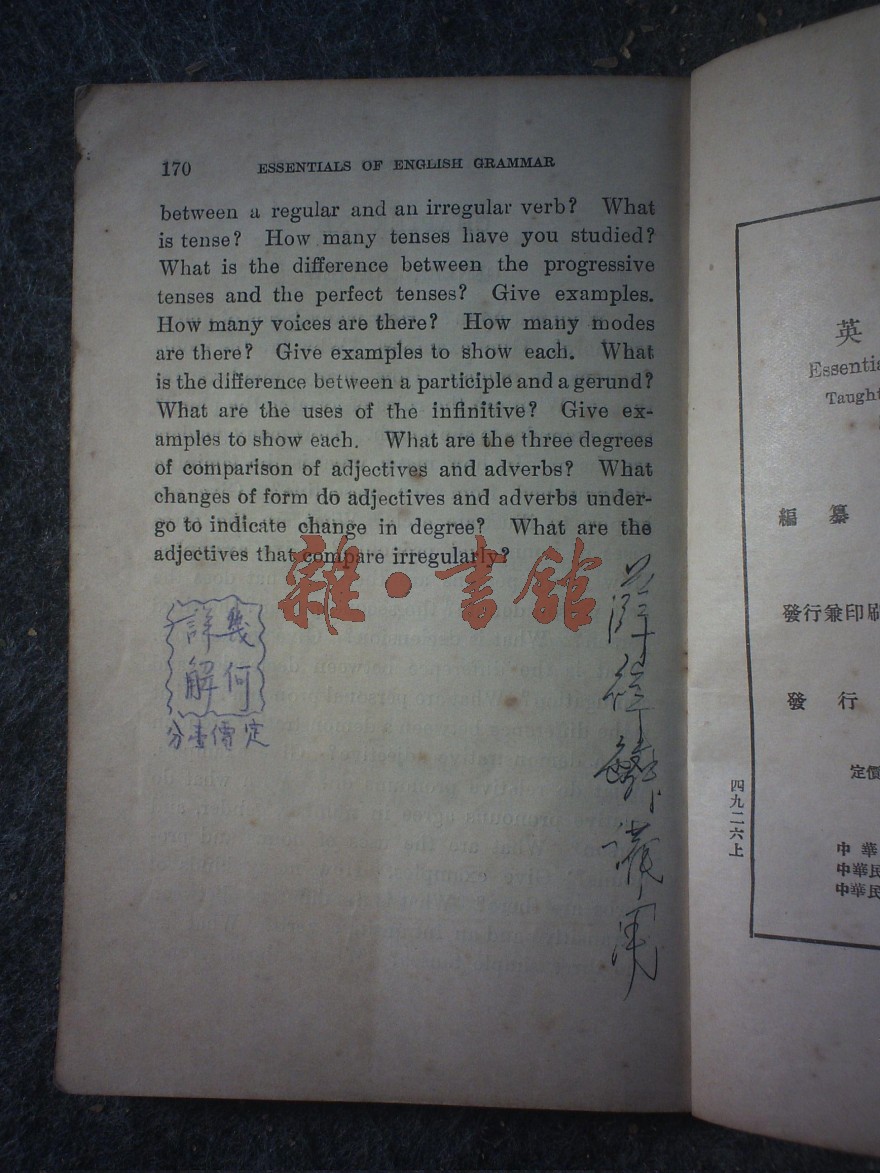 170 ESSENTIALS OF ENGLISH GRAMMAR
between a regular and an irregular verb? What
is tense? How many tenses have you studied?
What is the difference between the progressive
tenses and the perfect tenses? Give examples.
How many voices are there? How many modes
are there? Give examples to show each. What
is the difference between a participle and a gerund?
What are the uses of the infinitive? Give ex-
amples to show each. What are the three degrees
of comparison of adjectives and adverbs? What
changes of form do adjectives and adverbs under-
go to indicate change in degree? What are the
adjectives that compare irregularly?
雜·書館
幾何
詳解
定價壹分
英
Essentia
Taught
編纂
發行兼印刷
發行
定價
四九二六上
中華
中華民
中華民